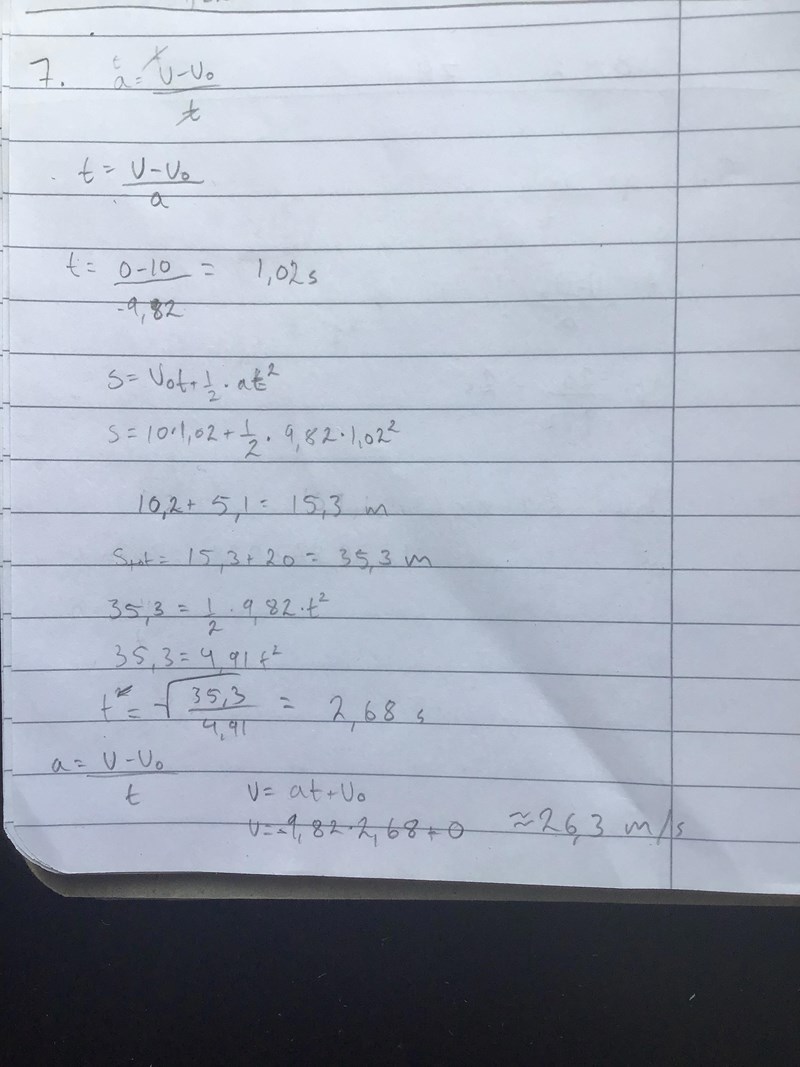 7. a = v-v₀ / t
t = v-v₀ / a
t = 0-10 / -9,82 = 1,02s
s = v₀t + 1/2 · at²
s = 10·1,02 + 1/2 · 9,82 · 1,02²
10,2 + 5,1 = 15,3 m
Stot = 15,3 + 20 = 35,3 m
35,3 = 1/2 · 9,82 · t²
35,3 = 4,91 t²
t = √(35,3 / 4,91) = 2,68 s
a = v-v₀ / t
v = at + v₀
v = -9,82 · 2,68 + 0 ≈ 26,3 m/s